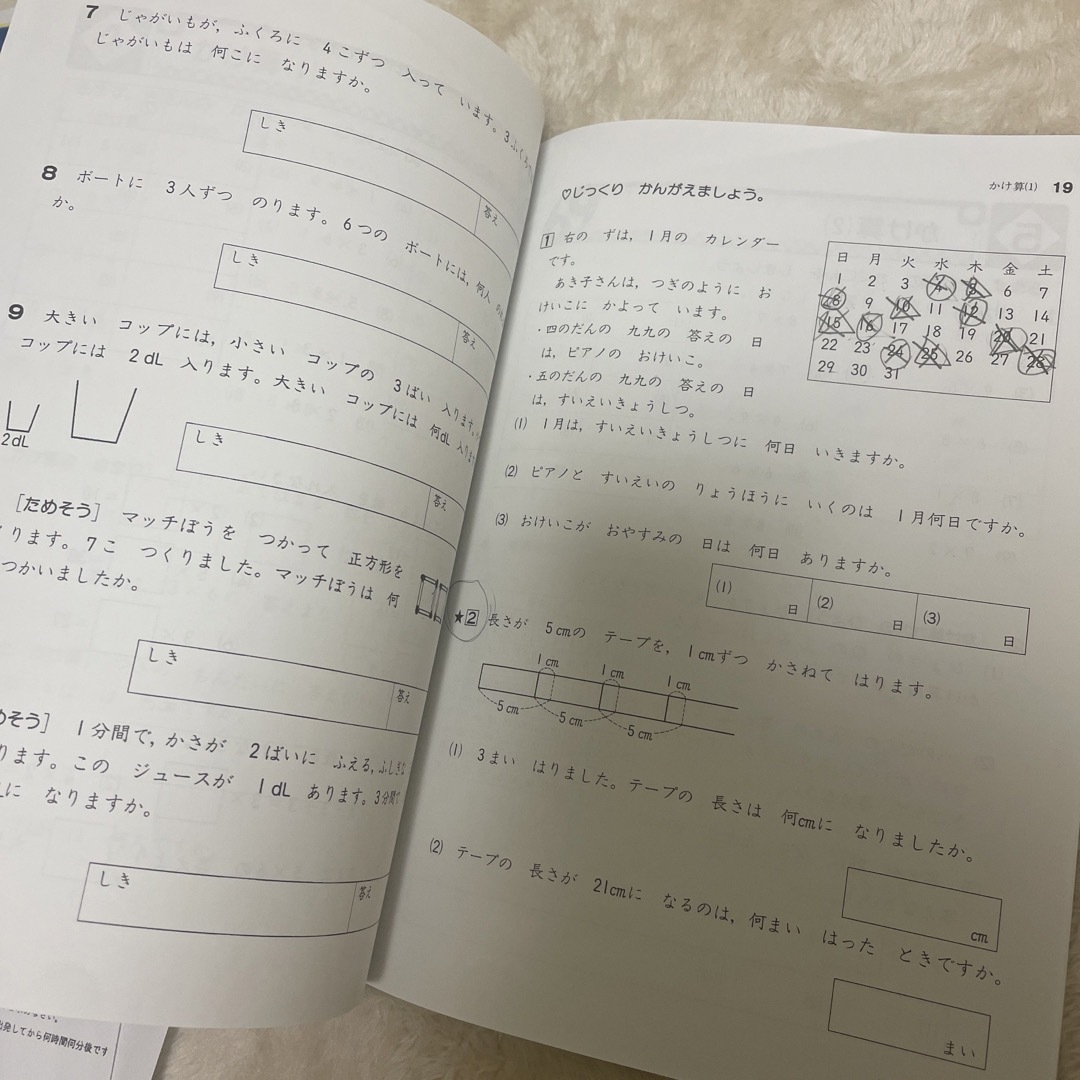 7 じゃがいもが，ふくろに 4こずつ 入って います。3ふくろ
じゃがいもは 何こに なりますか。
しき
答え
8 ボートに 3人ずつ のります。6つの ボートには，何人 の
か。
しき
答え
9 大きい コップには，小さい コップの 3ばい 入ります。
コップには 2dL 入ります。大きい コップには 何dL 入りま
2dL
しき
答え
［ためそう］ マッチぼうを つかって 正方形を
ります。7こ つくりました。マッチぼうは 何
つかいましたか。
しき
答え
めそう］ 1分間で，かさが 2ばいに ふえる，ふしぎな
ります。この ジュースが 1dL あります。3分間で
に なりますか。
しき
答え
出発してから何時間何分後です
かけ算⑴ 19
♡じっくり かんがえましょう。
1 右の ずは，1月の カレンダー
です。
あき子さんは，つぎのように お
けいこに かよって います。
・四のだんの 九九の 答えの 日
は，ピアノの おけいこ。
・五のだんの 九九の 答えの 日
は，すいえいきょうしつ。
日 月 火 水 木 金 土
1 2 3 4 5 6 7
8 9 10 11 12 13 14
15 16 17 18 19 20 21
22 23 24 25 26 27 28
29 30 31
⑴ 1月は，すいえいきょうしつに 何日 いきますか。
⑵ ピアノと すいえいの りょうほうに いくのは 1月何日ですか。
⑶ おけいこが おやすみの 日は 何日 ありますか。
⑴ 日 ⑵ 日 ⑶ 日
★2 長さが 5cmの テープを，1cmずつ かさねて はります。
1cm 1cm 1cm
5cm 5cm 5cm
⑴ 3まい はりました。テープの 長さは 何cmに なりましたか。
cm
⑵ テープの 長さが 21cmに なるのは，何まい はった ときですか。
まい